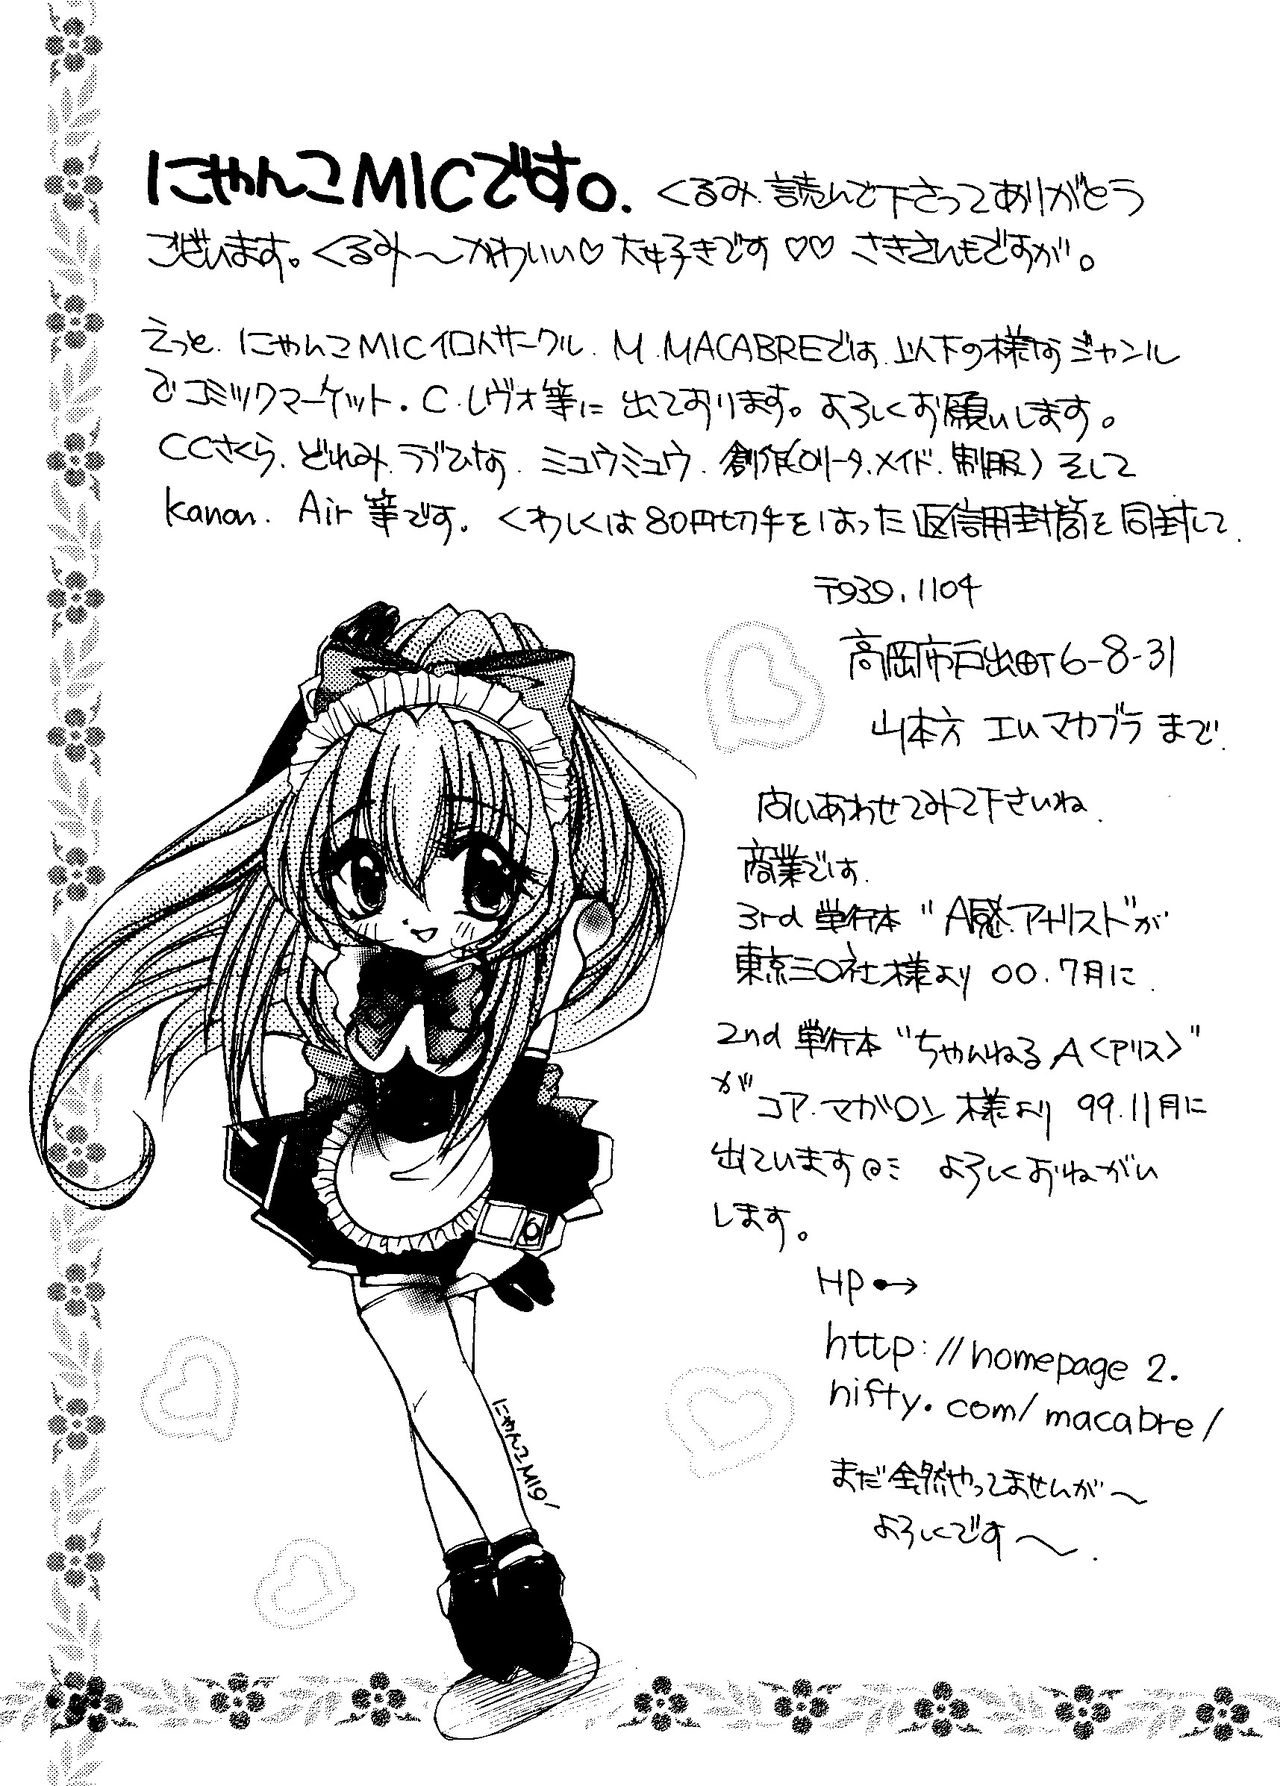 にゃんこMICです。くるみ.読んで下さってありがとう
ございます。くるみ〜かわいい♡大好きです♡♡さきさんもですが。
えっと.にゃんこMIC個人サークル.M.MACABREでは.以下の様なジャンル
でコミックマーケット.C.レヴォ等に出ております。よろしくお願いします。
CCさくら.どれみ.ラブひな.ミュウミュウ.創作(ロリータ.メイド.制服)そして
kanon. Air等です。くわしくは80円切手をはった返信用封筒を同封して.
〒939.1104
高岡市戸出町6-8-31
山本方 エムマカブラまで.
問いあわせてみて下さいね.
商業では.
3rd単行本"A感.アナリスト"が
東京三〇社様より00.7月に.
2nd単行本"ちゃんねるA<アリス>"
がコア.マガ〇ン様より99.11月に
出ています よろしくおねがい
します。
HP●→
http://homepage2.
nifty.com/macabre/
まだ全然やってませんが〜
よろしくです〜.
にゃんこMIC/